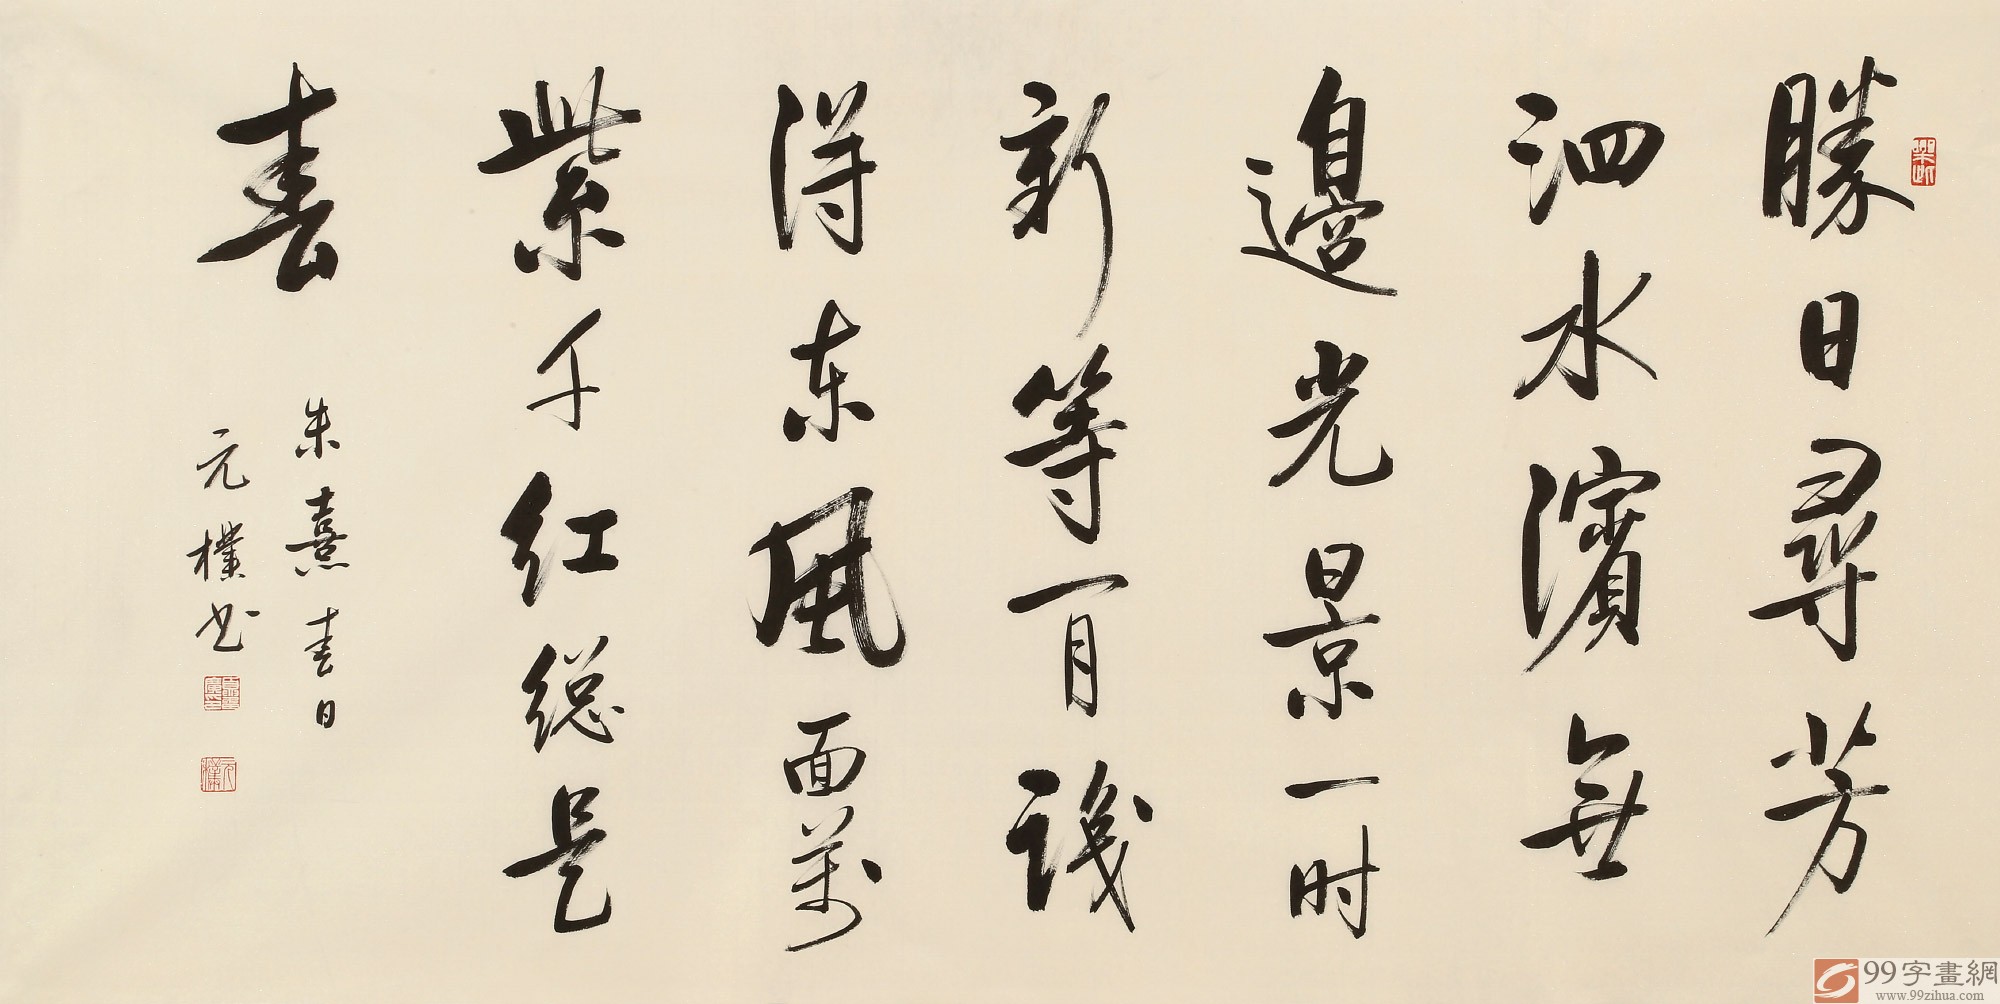 勝日尋芳
泗水濱無
邊光景一时
新等百识
得东風面萬
紫千红總是
春
朱熹春日
元樸书
99字畫網
www.99zihua.com